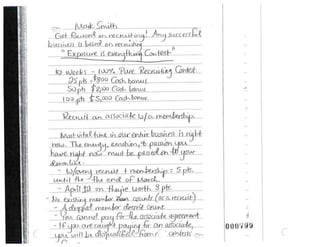 Mark Smith
Get focused on recruiting! Any successful
business is based on recruiting
"Exposure is everything Contest"
10 weeks - 100% Pure Recruiting Contest
25 pts $800 Cash bonus
50 pts $2,000 Cash bonus
100 pts $5,000 Cash bonus
Recruit an associate w/o a membership
Most vital time in our entire business is right
now. The energy, emotion, & passion you
have right now must be passed on to your
downline.
- W/every recruit + membership = 5 pts.
until the end of March
- April 1st on they're worth 3 pts.
- No existing member can counts (as a recruit)
- A dropped member doesn't count
- You cannot pay for the associate agreement
- If you are caught paying for an associate,
you will be disqualified from contests
000799